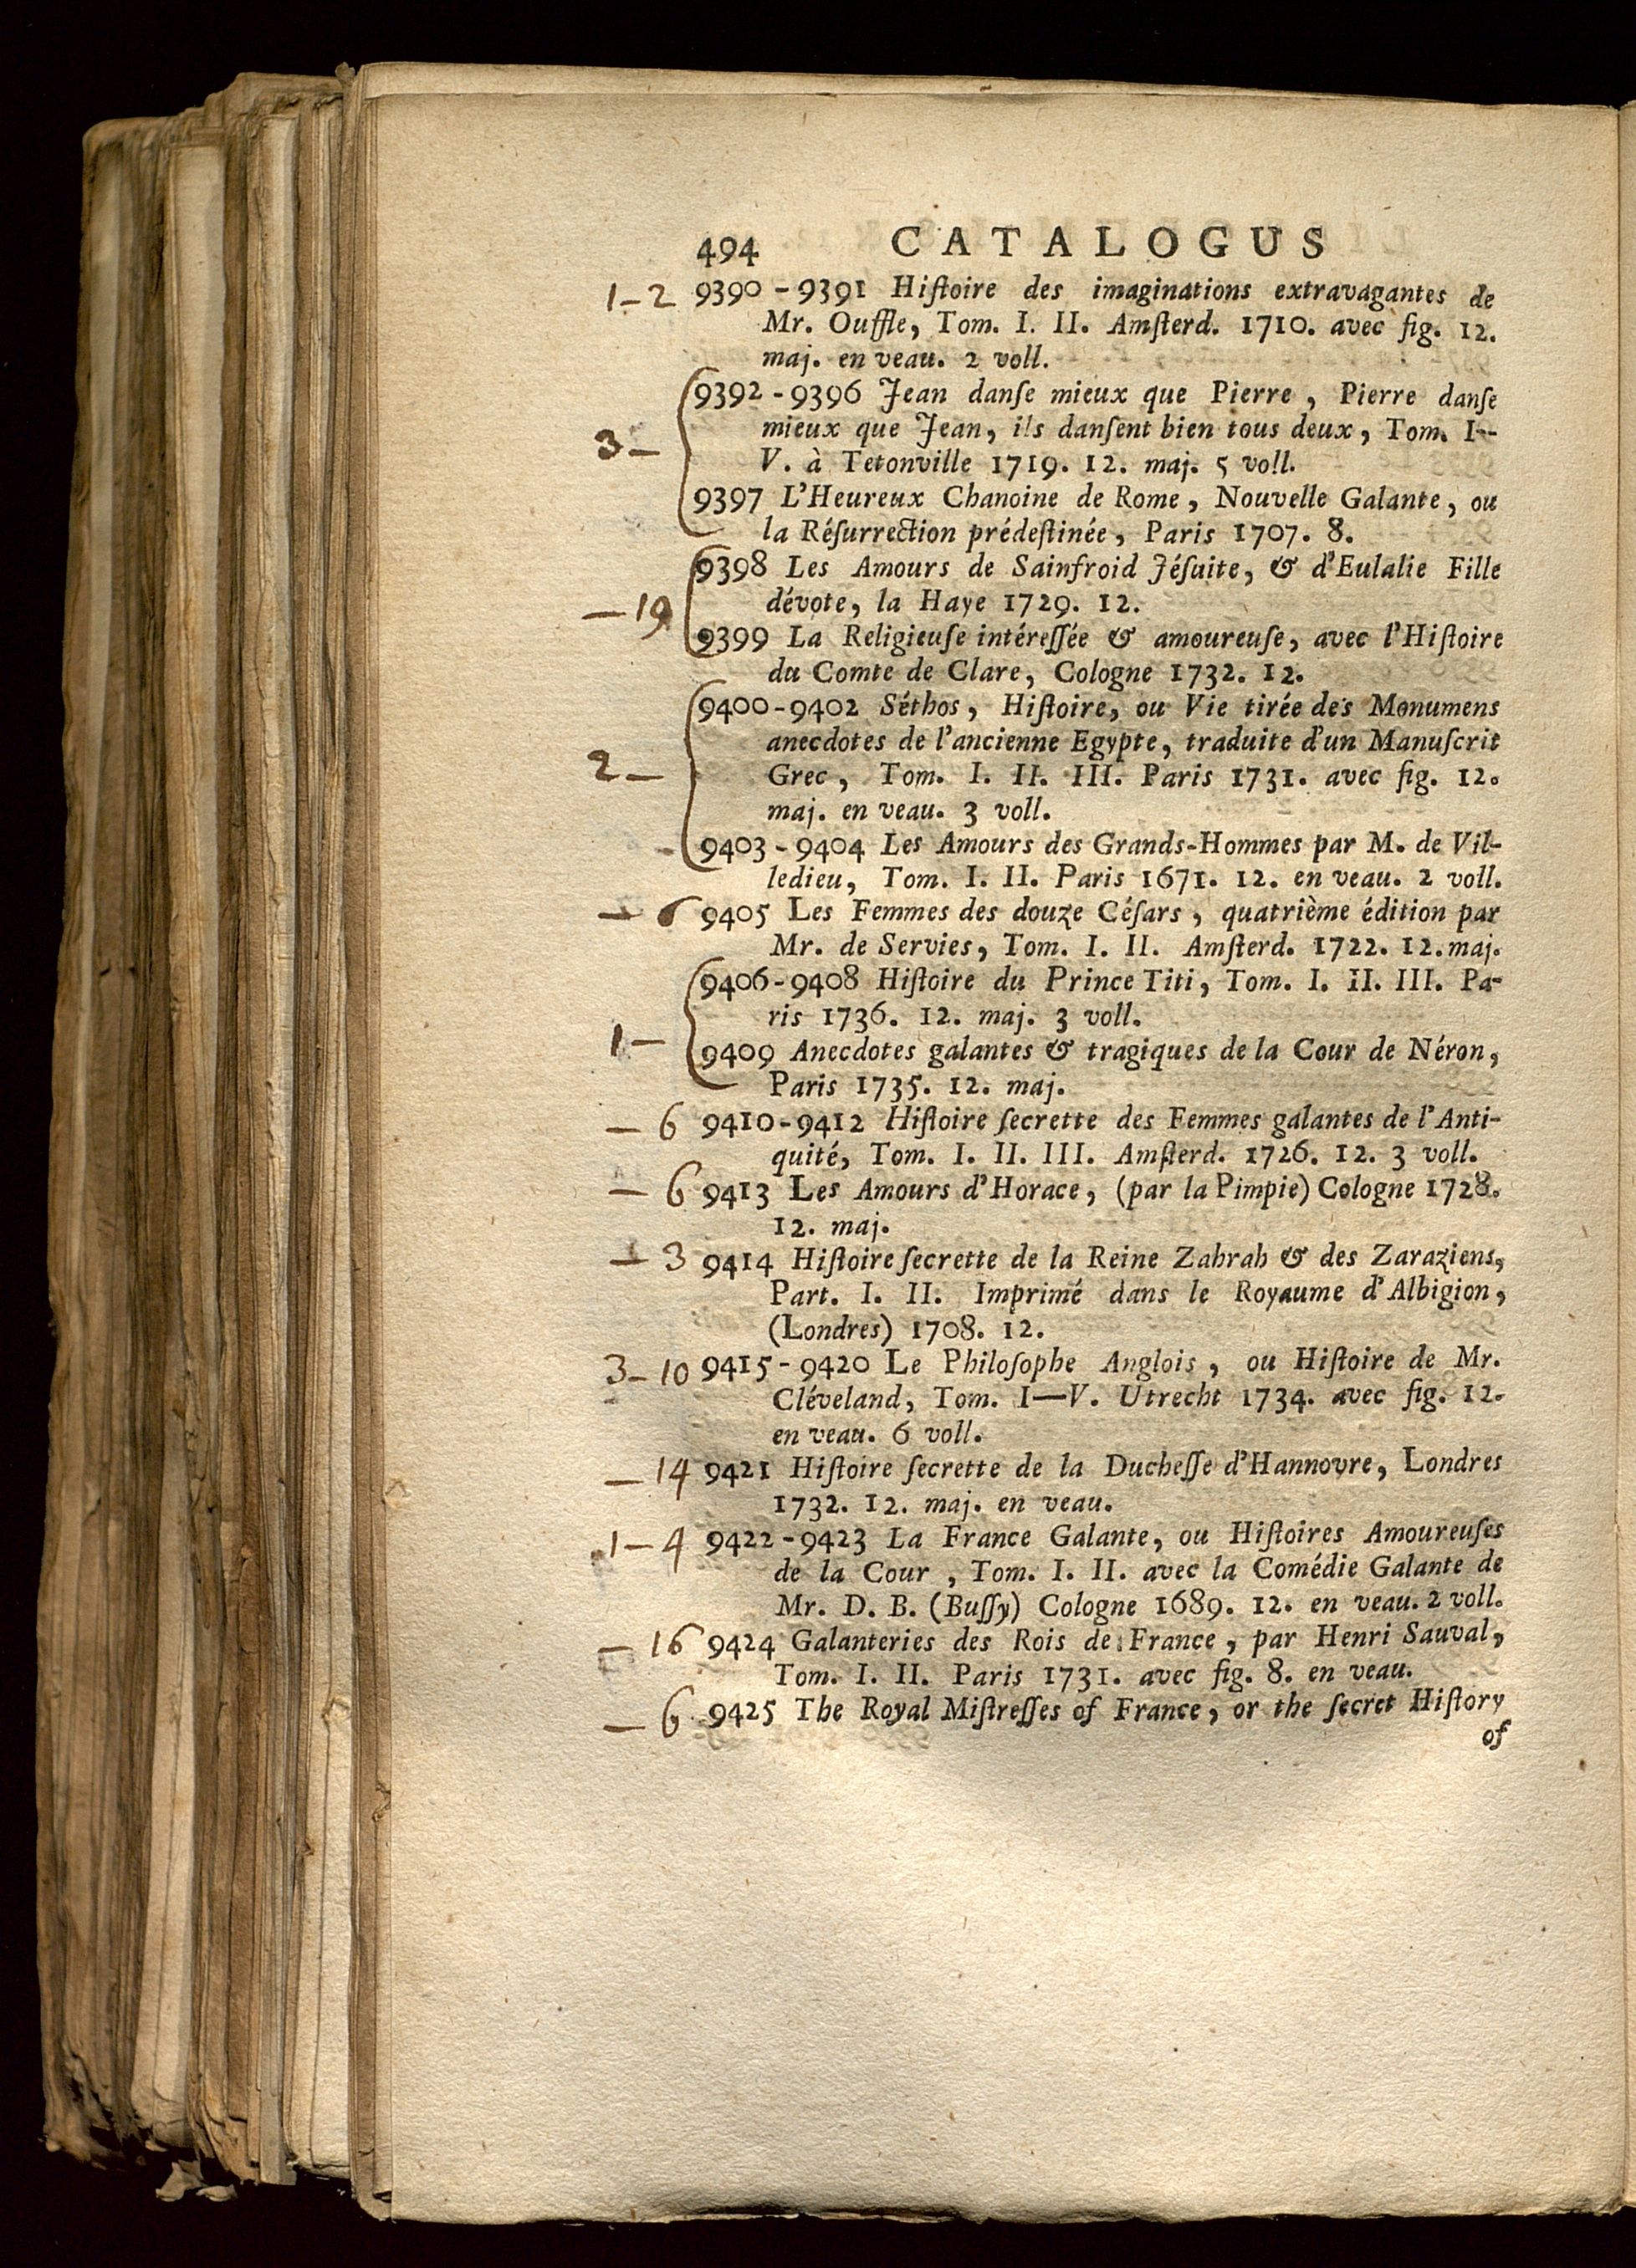 494 CATALOGUS
1-2 9390-9391 Hiſtoire des imaginations extravagantes de
Mr. Ouffle, Tom. I. II. Amſterd. 1710. avec fig. 12.
maj. en veau. 2 voll.
9392-9396 Jean danſe mieux que Pierre, Pierre danſe
mieux que Jean, ils danſent bien tous deux, Tom. I--
3- V. à Tetonville 1719. 12. maj. 5 voll.
9397 L'Heureux Chanoine de Rome, Nouvelle Galante, ou
la Réſurrection prédeſtinée, Paris 1707. 8.
9398 Les Amours de Sainfroid Jéſuite, & d'Eulalie Fille
-19 dévote, la Haye 1729. 12.
9399 La Religieuſe intéreſſée & amoureuſe, avec l'Hiſtoire
du Comte de Clare, Cologne 1732. 12.
9400-9402 Séthos, Hiſtoire, ou Vie tirée des Monumens
anecdotes de l'ancienne Egypte, traduite d'un Manuſcrit
2- Grec, Tom. I. II. III. Paris 1731. avec fig. 12.
maj. en veau. 3 voll.
9403-9404 Les Amours des Grands-Hommes par M. de Vil-
ledieu, Tom. I. II. Paris 1671. 12. en veau. 2 voll.
-6 9405 Les Femmes des douze Céſars, quatrième édition par
Mr. de Servies, Tom. I. II. Amſterd. 1722. 12. maj.
9406-9408 Hiſtoire du Prince Titi, Tom. I. II. III. Pa-
ris 1736. 12. maj. 3 voll.
1- 9409 Anecdotes galantes & tragiques de la Cour de Néron,
Paris 1735. 12. maj.
-6 9410-9412 Hiſtoire ſecrette des Femmes galantes de l'Anti-
quité, Tom. I. II. III. Amſterd. 1726. 12. 3 voll.
-6 9413 Les Amours d'Horace, (par la Pimpie) Cologne 1728.
12. maj.
-3 9414 Hiſtoire ſecrette de la Reine Zahrah & des Zaraziens,
Part. I. II. Imprimé dans le Royaume d'Albigion,
(Londres) 1708. 12.
3-10 9415-9420 Le Philoſophe Anglois, ou Hiſtoire de Mr.
Cléveland, Tom. I—V. Utrecht 1734. avec fig. 12.
en veau. 6 voll.
-14 9421 Hiſtoire ſecrette de la Ducheſſe d'Hannovre, Londres
1732. 12. maj. en veau.
1-4 9422-9423 La France Galante, ou Hiſtoires Amoureuſes
de la Cour, Tom. I. II. avec la Comédie Galante de
Mr. D. B. (Buſſy) Cologne 1689. 12. en veau. 2 voll.
-16 9424 Galanteries des Rois de France, par Henri Sauval,
Tom. I. II. Paris 1731. avec fig. 8. en veau.
-6 9425 The Royal Miſtreſſes of France, or the ſecret Hiſtory
of